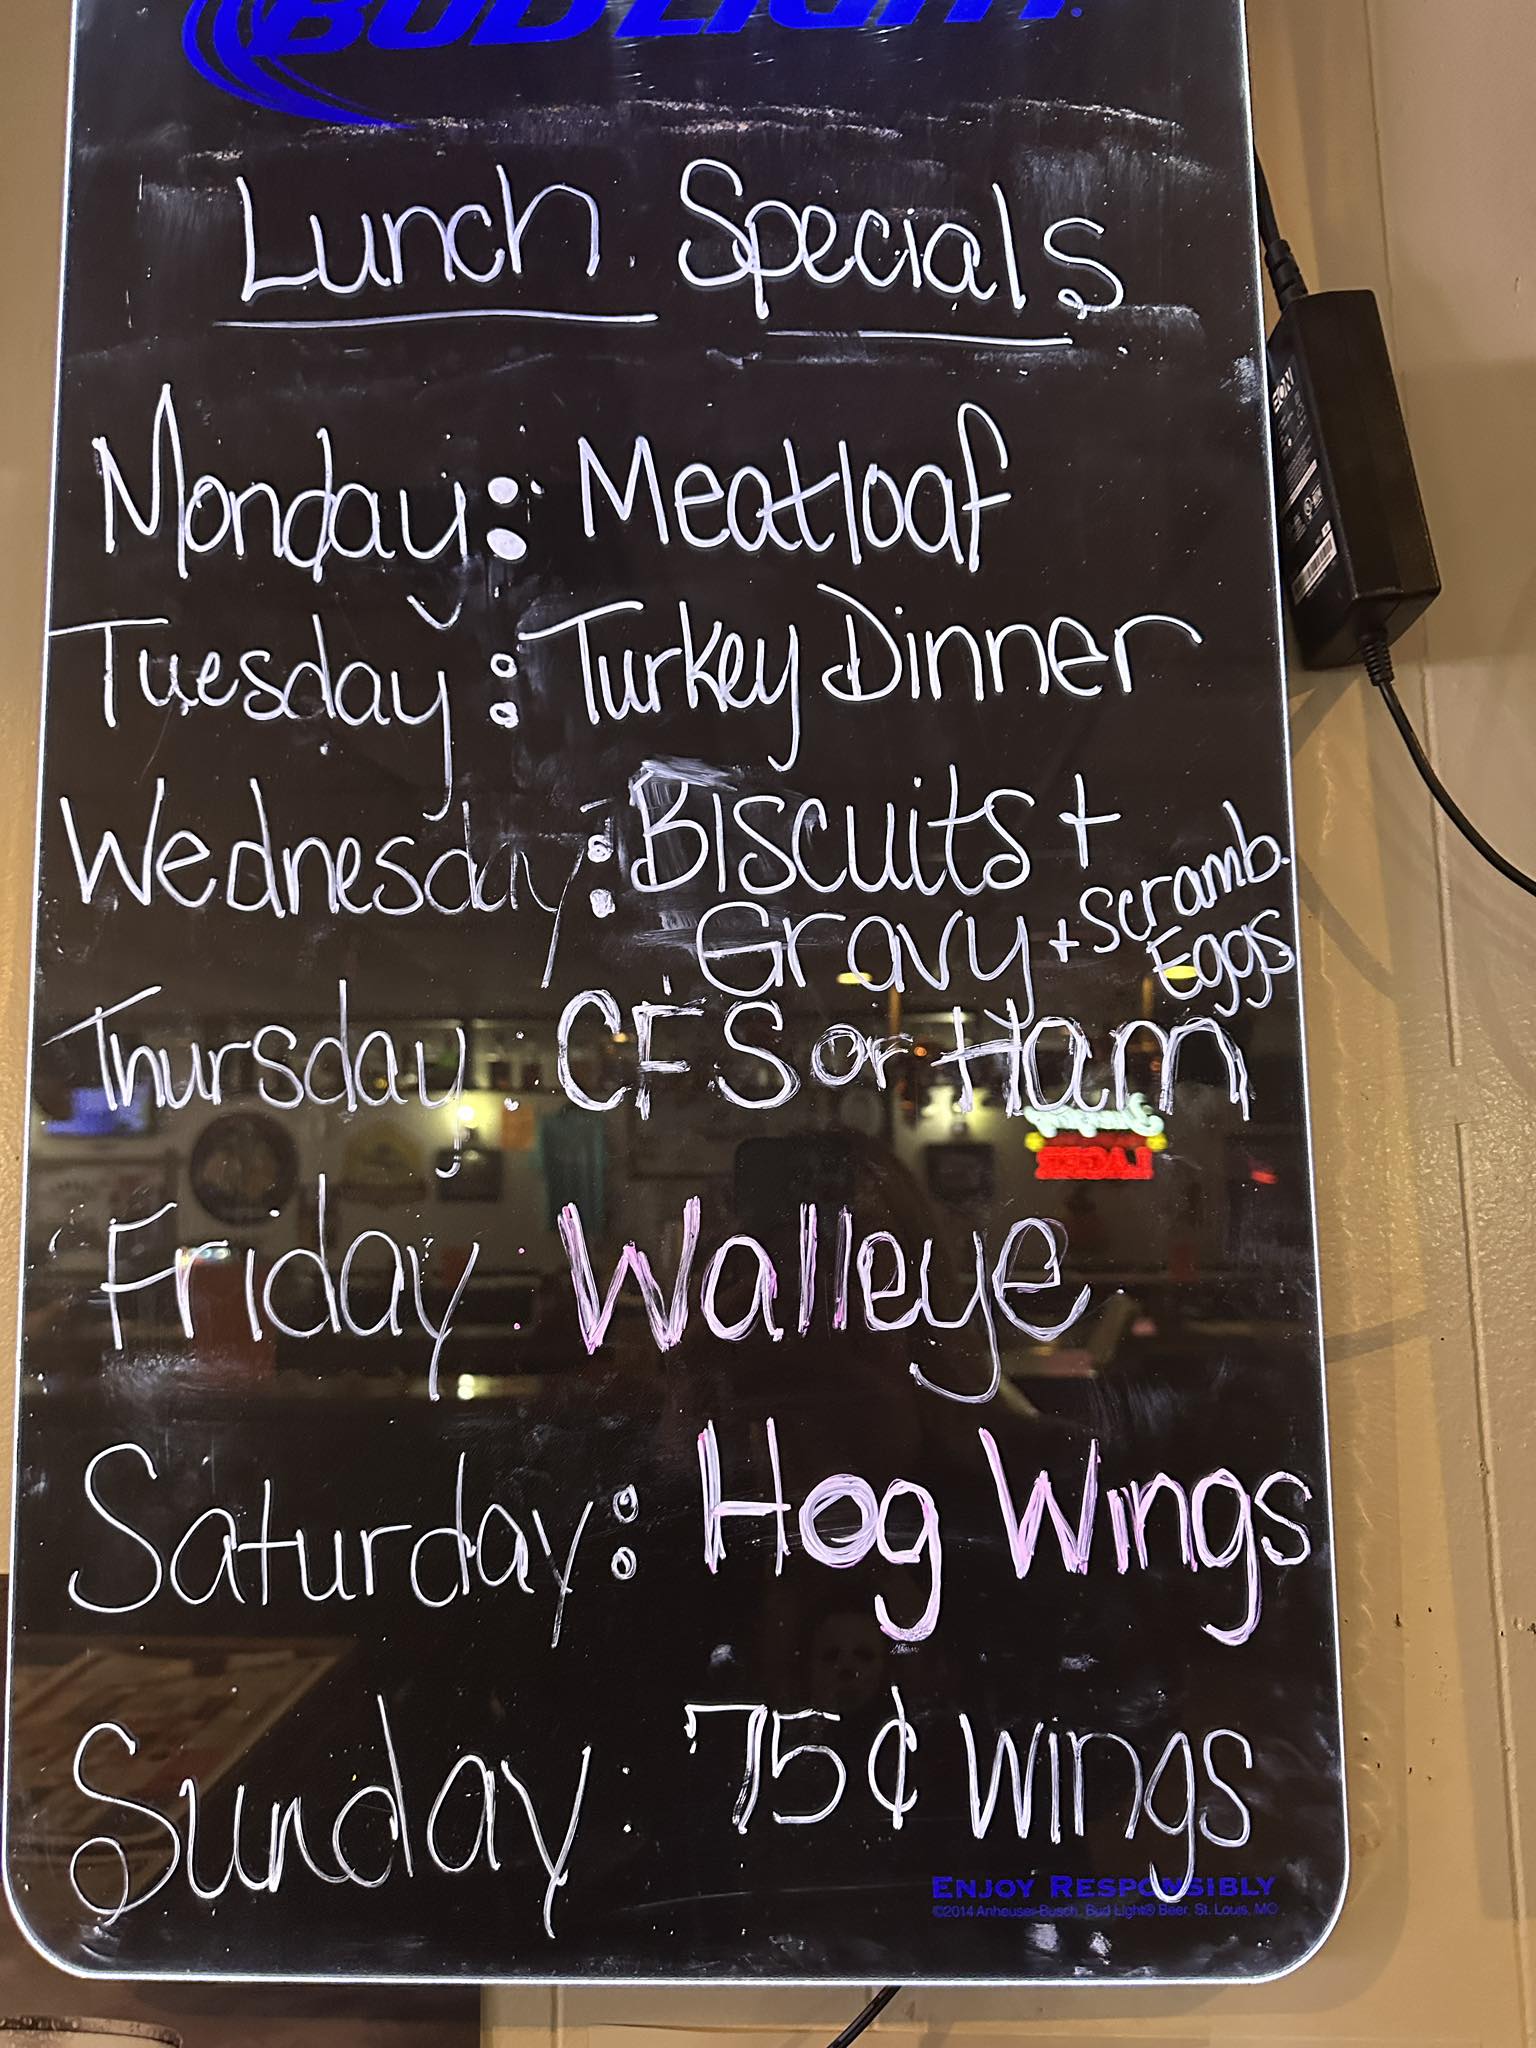 BUD LIGHT®
Lunch Specials
Monday: Meatloaf
Tuesday: Turkey Dinner
Wednesday: Biscuits +
Gravy + Scramb. Eggs
Thursday: CFS or Ham
Friday: Walleye
Saturday: Hog Wings
Sunday: 75¢ Wings
ENJOY RESPONSIBLY
©2014 Anheuser-Busch, Bud Light® Beer, St. Louis, MO
LAGER